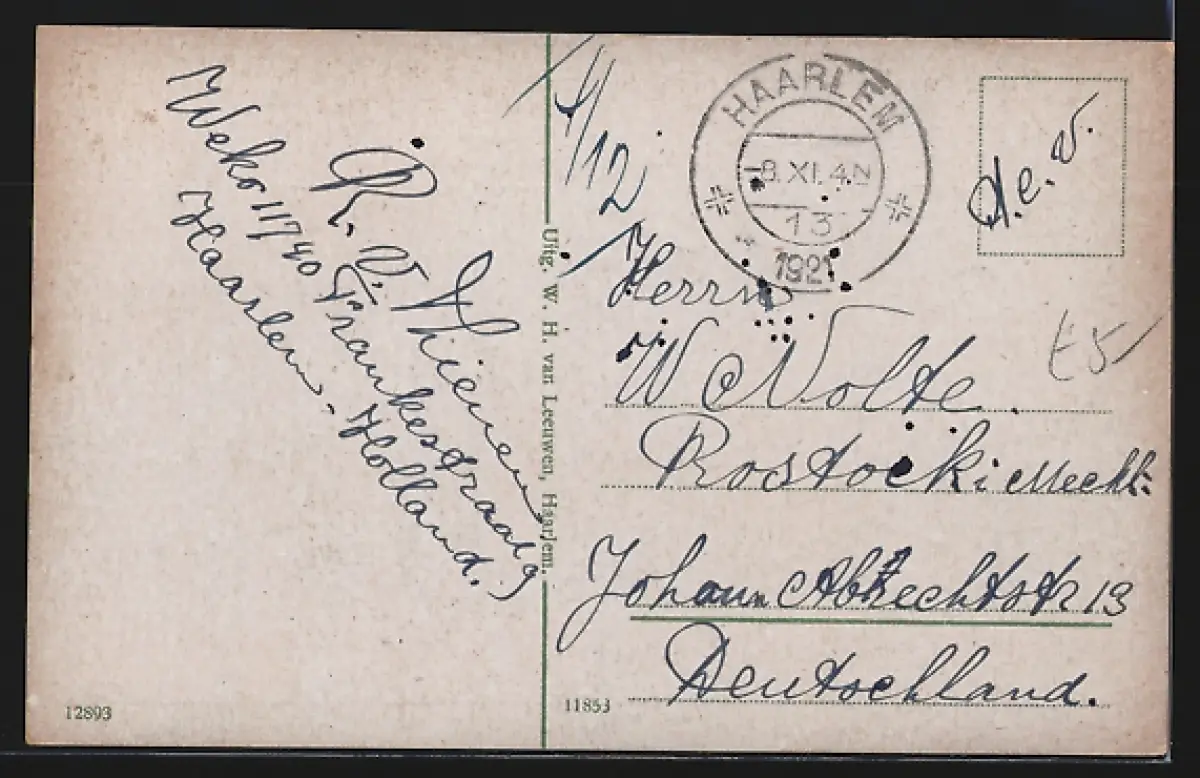 R. V. Thienen
Weko 11740 Frankestraat 9
Haarlem. Holland.
12893
Uitg. W. H. van Leeuwen, Haarlem.
4/12
HAARLEM
-8.XI.4N
13
1921
t.e.v.
Herrn
W Nolte.
Rostock i Meckl:
Johann Albrechtstr 13
Deutschland.
11853